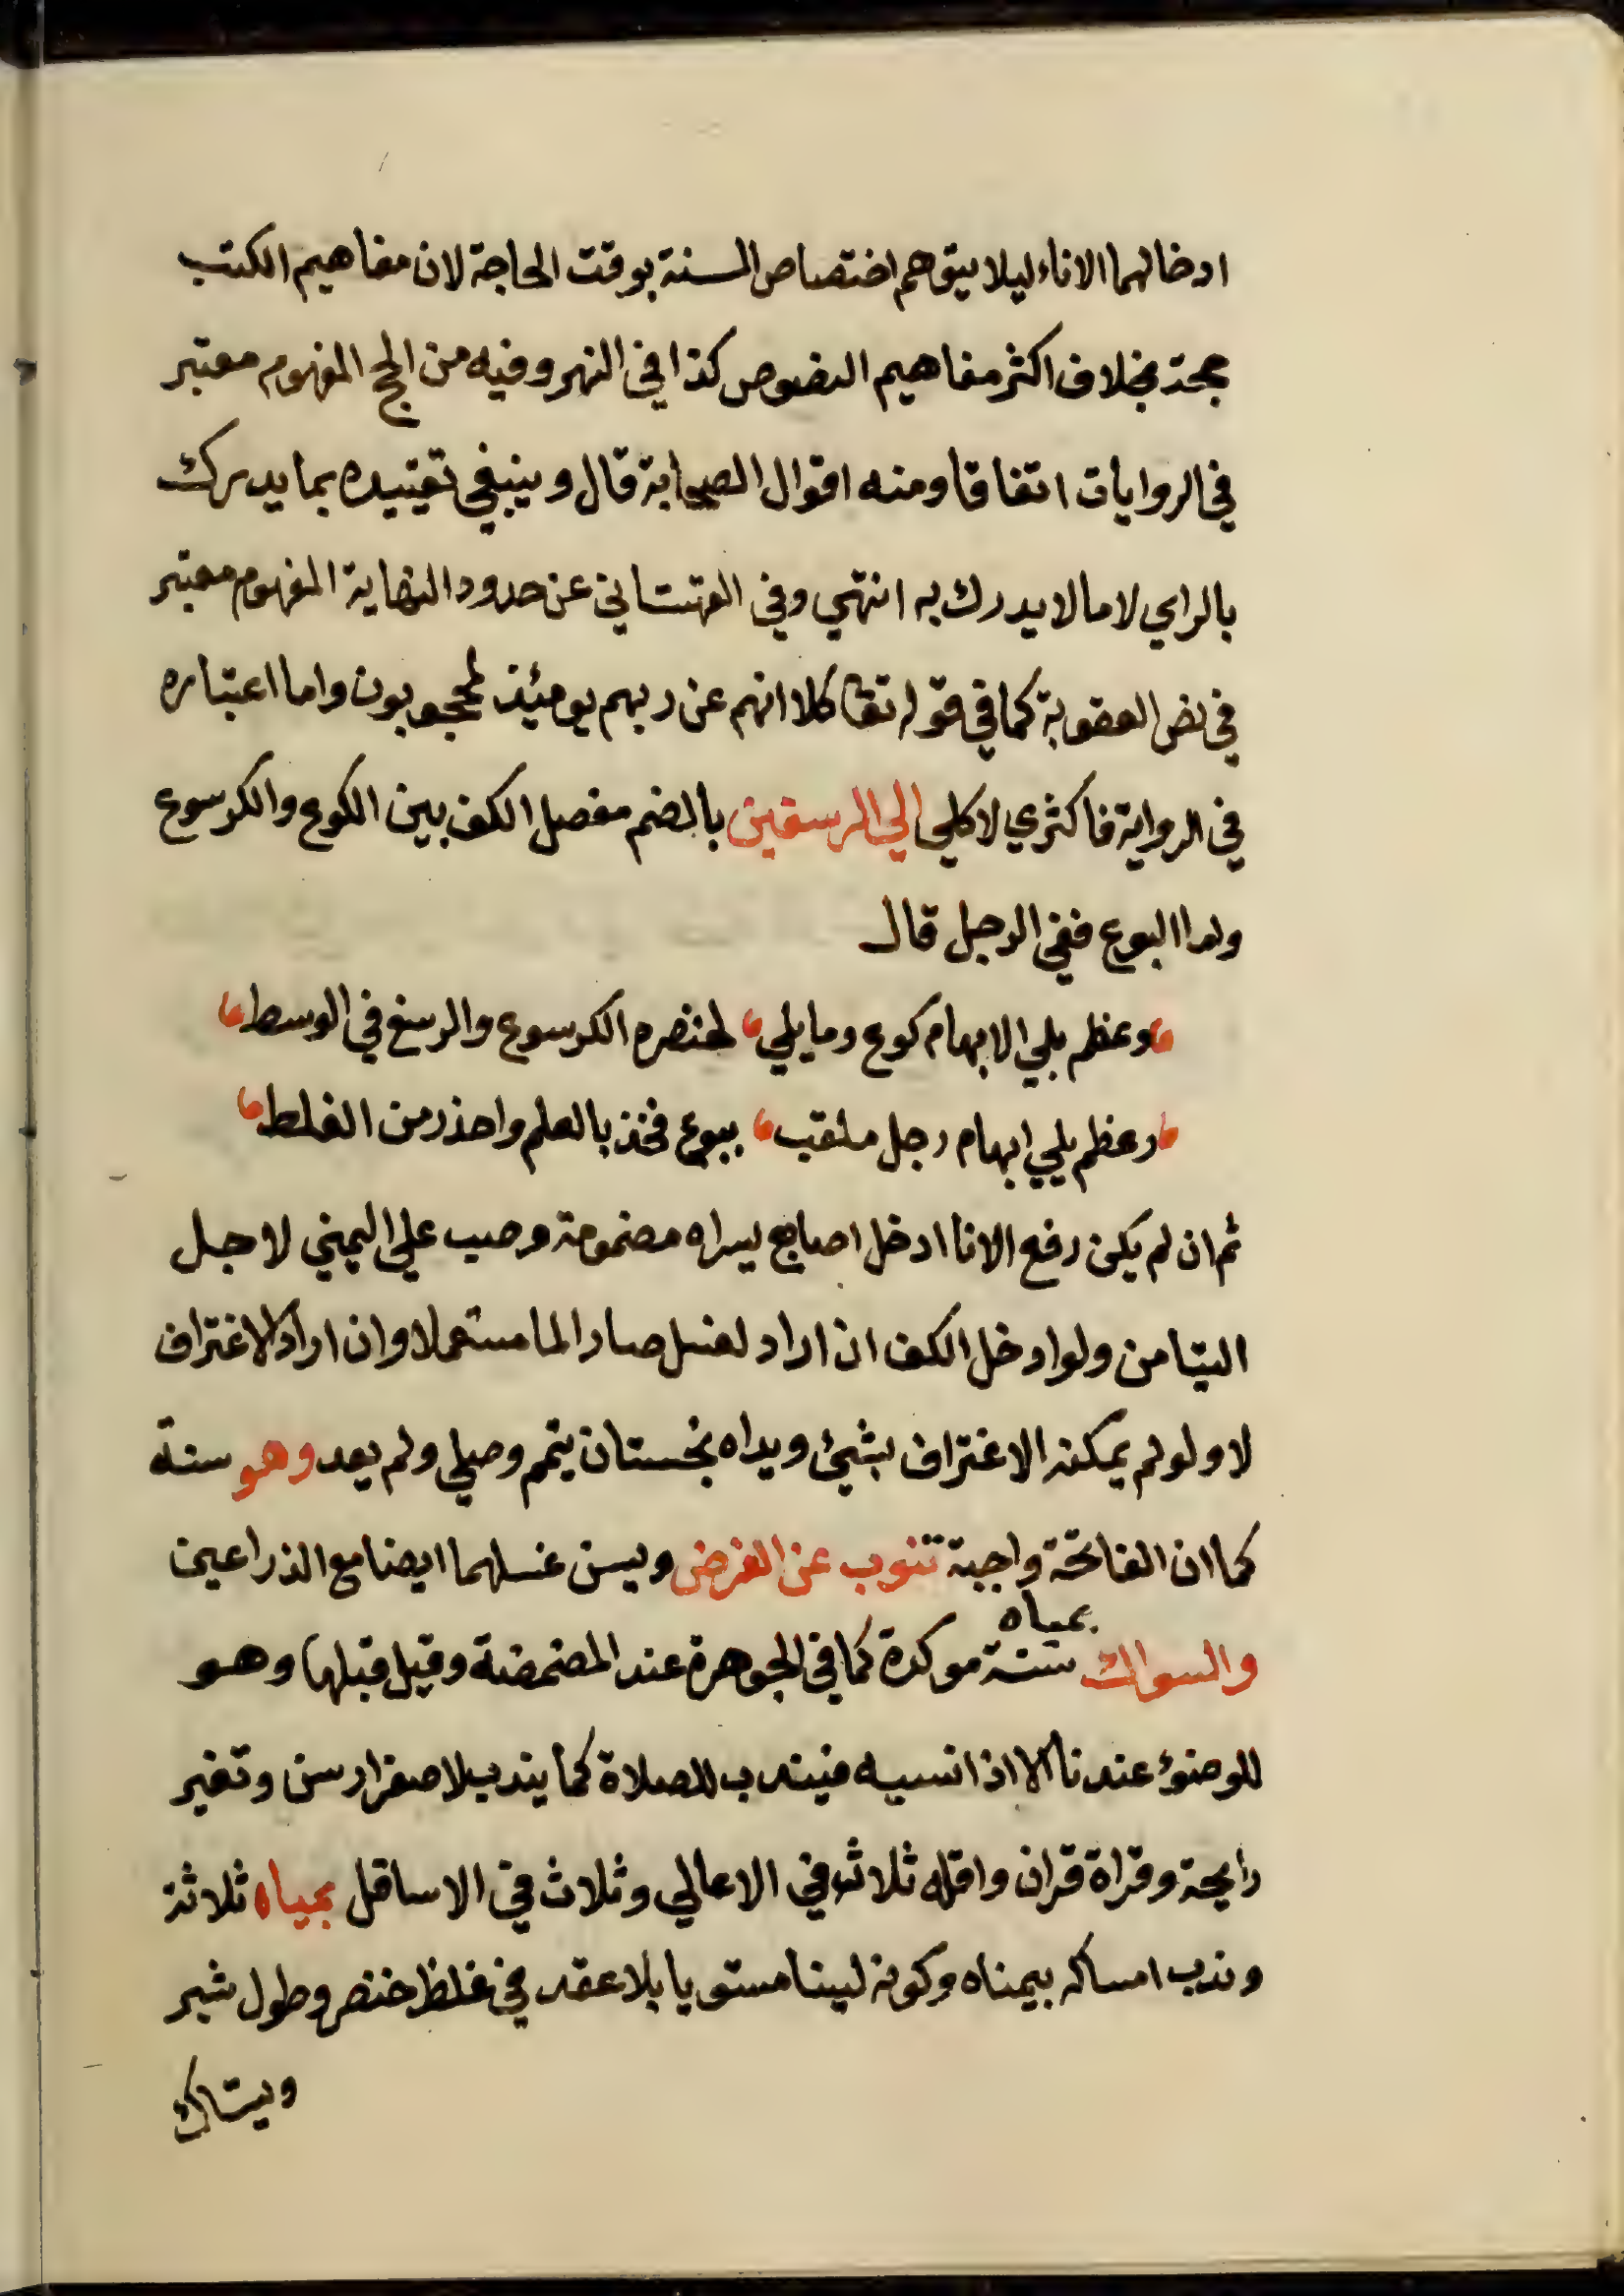 ادخالهما الاناء ليلا يتوهم اختصاص السنة بوقت الحاجة لان مفاهيم الكتب
حجة بخلاف اكثر مفاهيم النصوص كذا في النهر وفيه من الحج المفهوم معتبر
في الروايات اتفاقا ومنه اقوال الصحابة قال وينبغي تقييده بما يدرك
بالراي لا ما لا يدرك به انتهي وفي القهستاني عن حدود النهاية المفهوم معتبر
في نص العقوبة كما في قوله تعا كلا انهم عن ربهم يومئذ لمحجوبون واما اعتباره
في الرواية فاكثري لا كلي الي الرسغين بالضم مفصل الكف بين الكوع والكرسوع
واما البوع ففي الرجل قال
وعظم يلي الابهام كوع وما يلي لخنصره الكرسوع والرسغ في الوسط
وعظم يلي ابهام رجل ملقب ببوع فخذ بالعلم واحذر من الغلط
ثم ان لم يكن رفع الانا ادخل اصابع يسراه مضمومة وصب علي اليمني لاجل
التيامن ولو ادخل الكف ان اراد لغسل صار الما مستعملا وان اراد الاغتراف
لا ولو لم يمكنه الاغتراف بشئ ويداه نجستان يتمم وصلي ولم يعد وهو سنة
كما ان الفاتحة واجبة تنوب عن الفرض ويسن غسلهما ايضا مع الذراعين
بمياه
والسواك سنة موكدة كما في الجوهرة عند المضمضة وقيل قبلها وهو
للوضوء عندنا الا اذا نسيه فيندب للصلاة كما يندب لاصفرار سن وتغير
رايحة وقراة قران واقله ثلاث في الاعالي وثلاث في الاسافل بمياه ثلاثة
وندب امساكه بيمناه وكونه لينا مستويا بلا عقد في غلظ خنصر وطول شبر
ويستاك